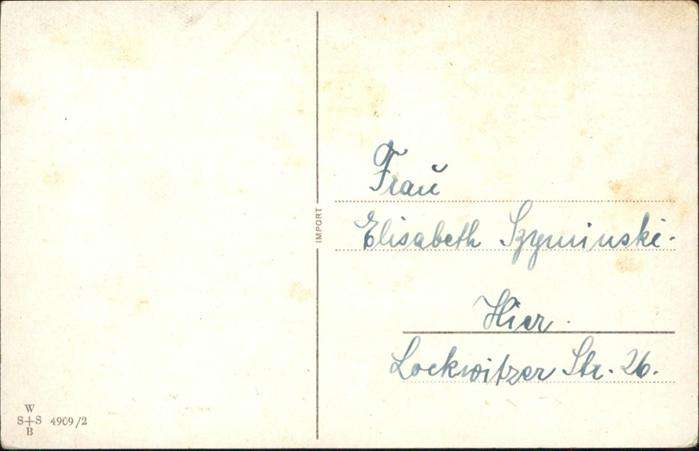 Frau
Elisabeth Szyminski.
Hier.
Lockwitzer Str. 26.
IMPORT
W
S S 4909/2
B